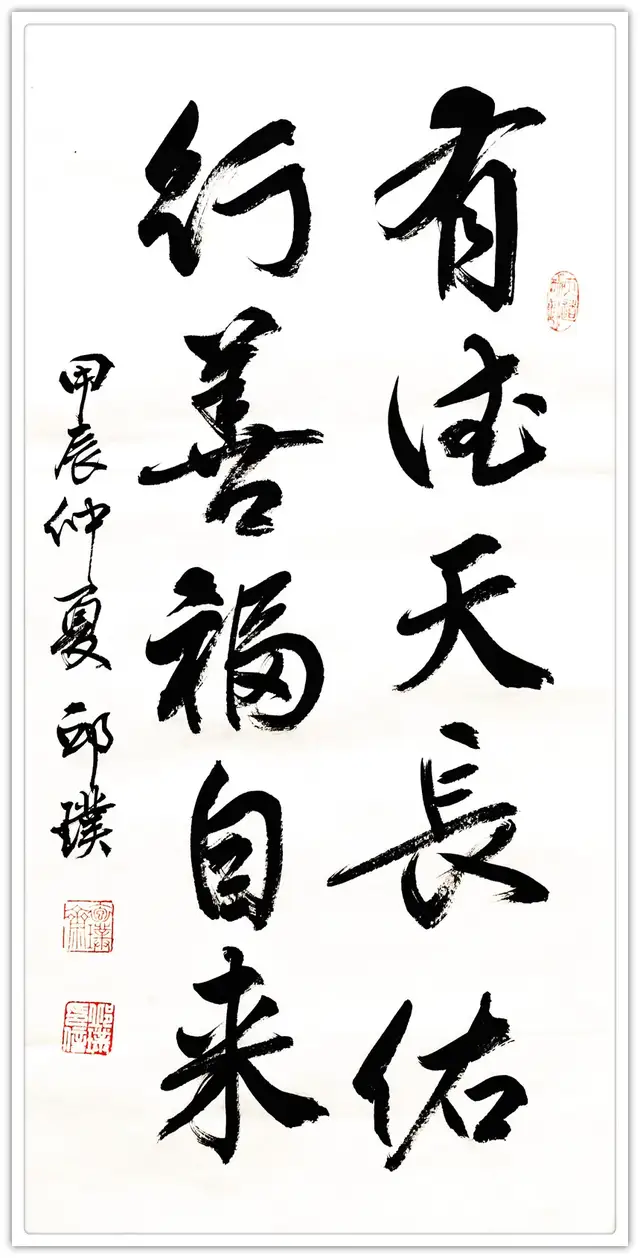 有德天長佑
行善福自来
甲辰仲夏 邱璞